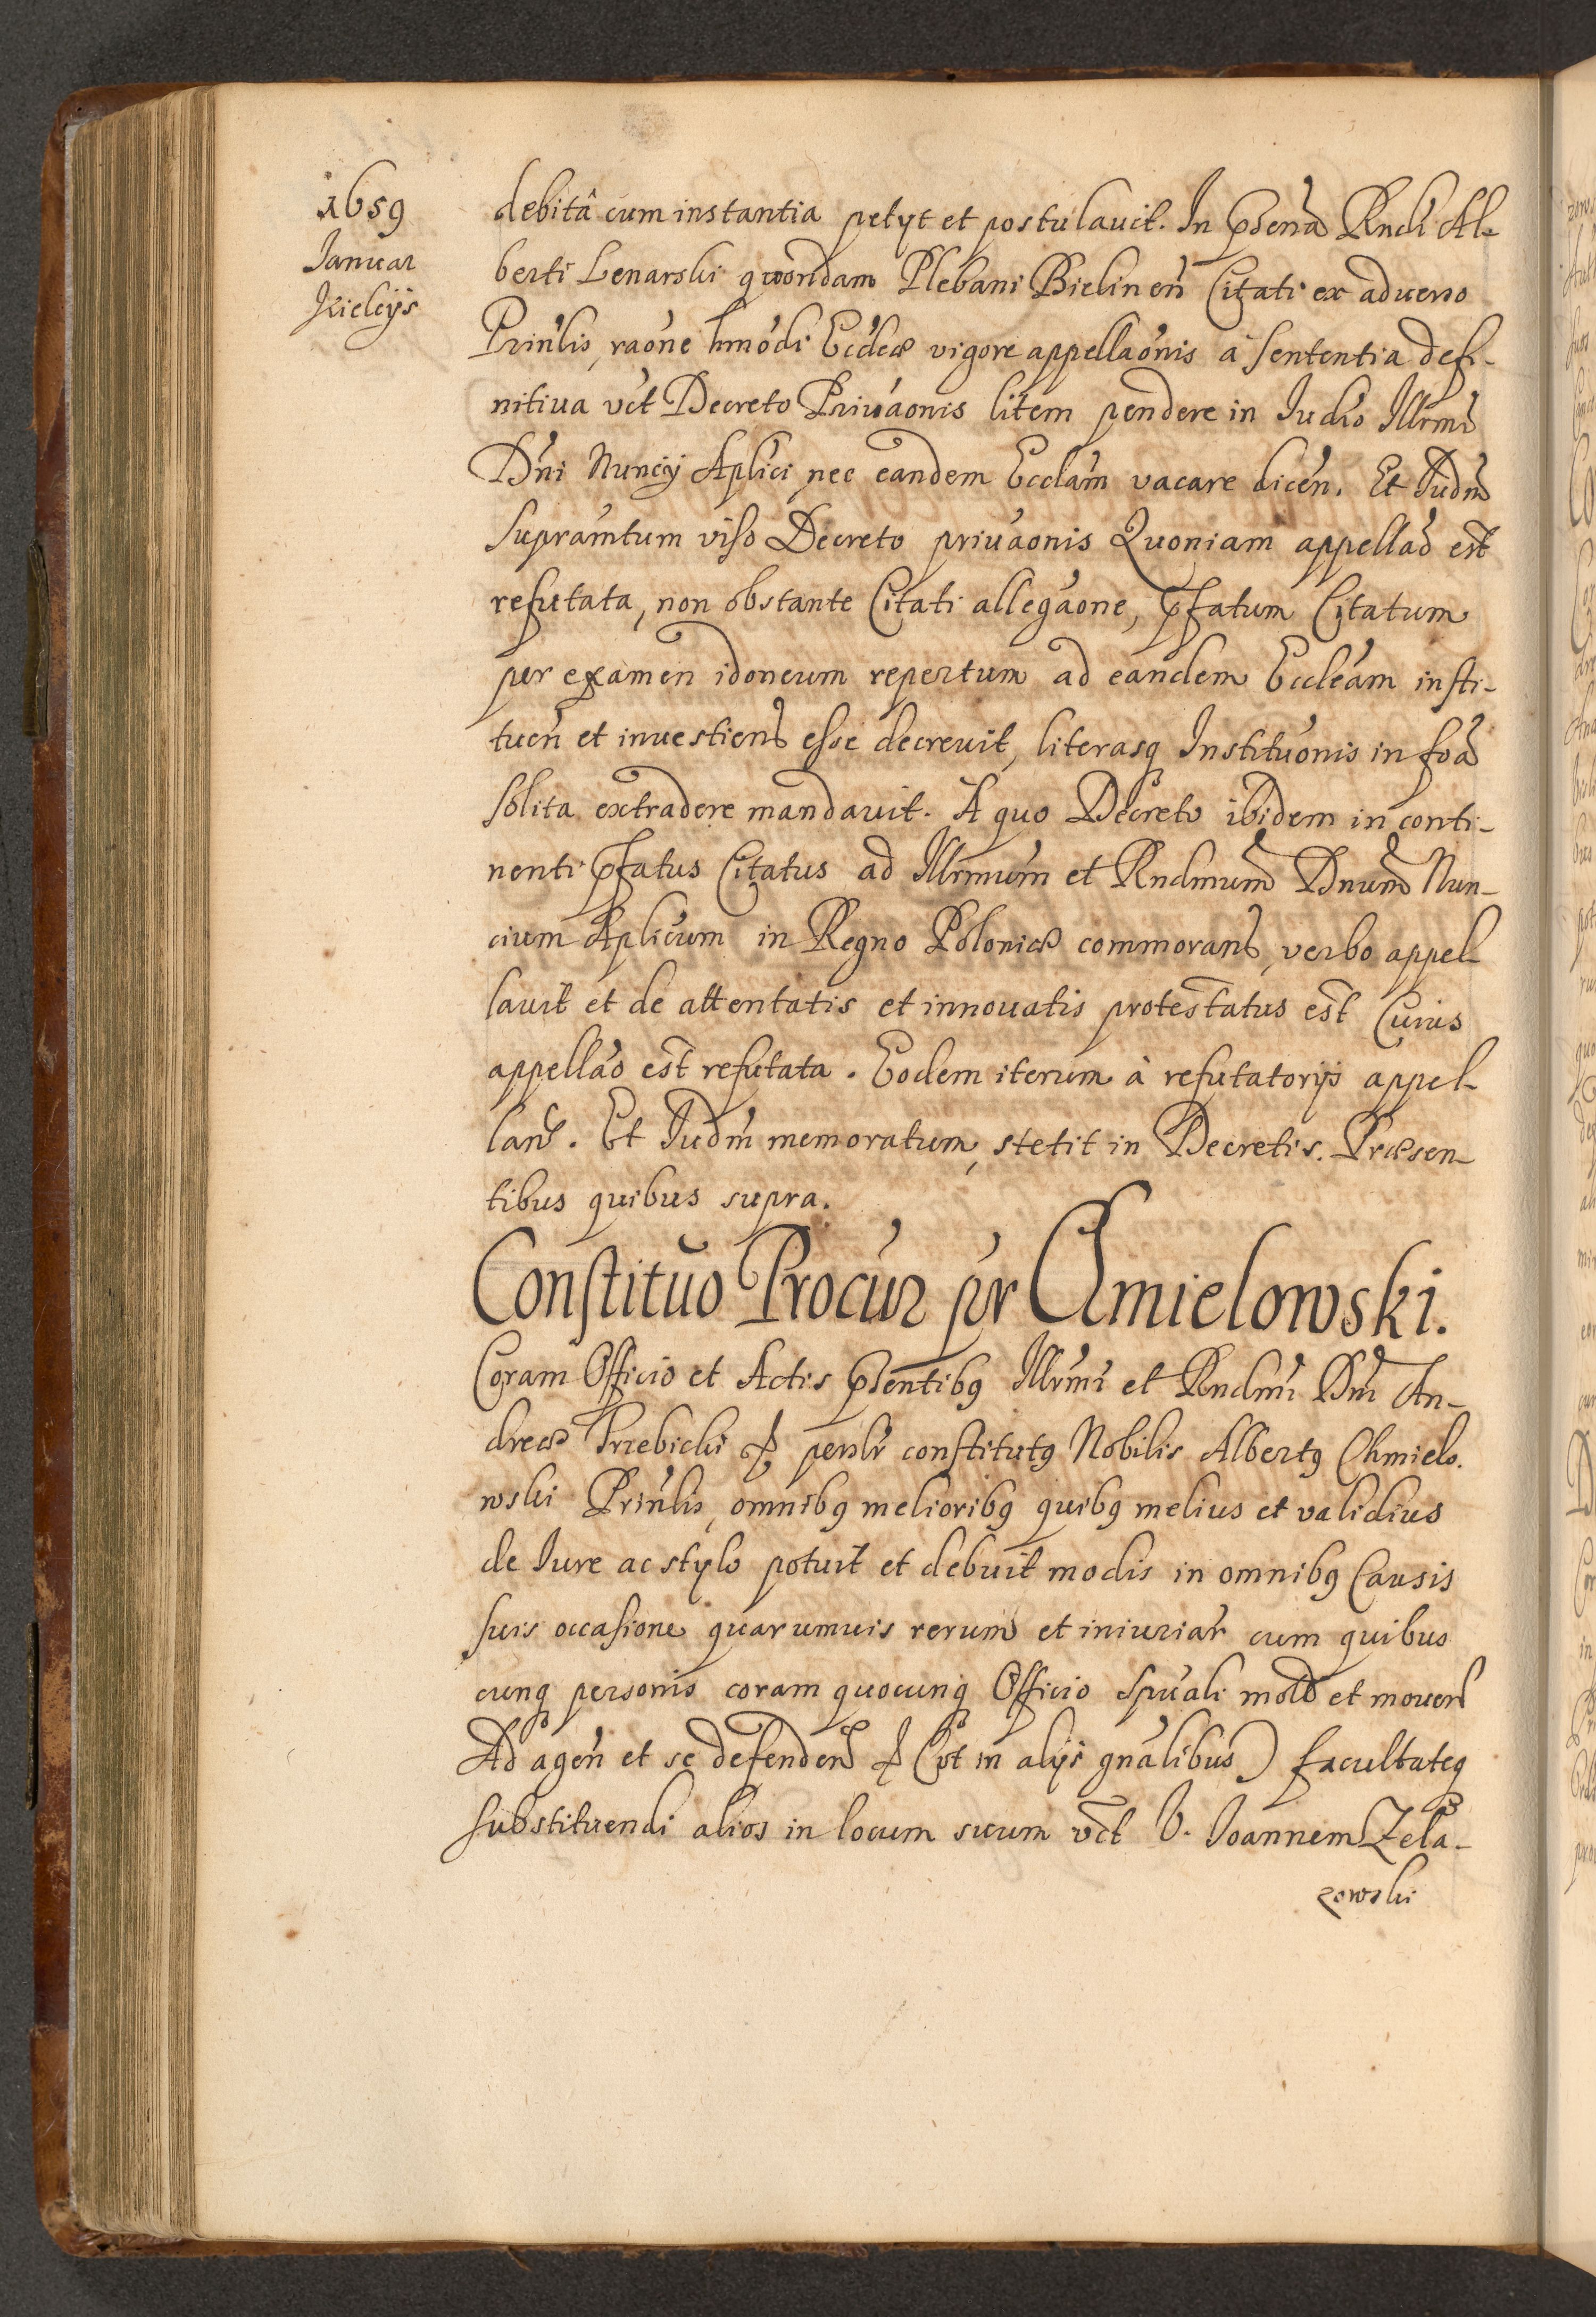 1659
Januar
Kielcijs
debitâ cum instantia petyt et postulavit. In pñtia Rndi Al-
berti Lenarski quondam Plebani Bielinen̄ Citati ex adverso
Prin̄lis, raōne hm̄odi Eccl̄eæ vigore appellaōnis à sententia defi-
nitiua vel Decreto Privaōnis litem pendere in Iudio Illrmi
Dn̄i Nuncij Aplici nec eandem Eccl̄am vacare dicen̄. Et Iudm̄
supram̄tum viso Decreto privaōnis Quoniam appellao est
refutata, non obstante Citati allegaōne, p̄fatum Citatum
per examen idoneum repertum ad eandem Eccleām insti-
tuen̄ et investiend esse decrevit, literasq Instituōnis in foā
solita extradere mandavit. A quo Decreto ibidem in conti-
nenti p̄fatus Citatus ad Illrmum et Rndmum Dnum Nun-
cium Aplicum in Regno Poloniæ commorans, verbo appel-
lavit et de attentatis et innovatis protestatus est Cuius
appellāo est refutata. Eodem iterum à refutatorijs appel-
lan̄. Et Iudm̄ memoratum, stetit in Decretis. Præsen-
tibus quibus supra.
Constituō Procur pr Chmielowski.
Coram Officio et Actis p̄sentibq Illrmi et Rndmi Dni An-
dreæ Trzebicki & persolr constitutq Nobilis Albertq Chmielo-
wski Prin̄lis, omnibq melioribq quibq melius et validius
de Iure ac stylo potuit et debuit modis in omnibq Causis
suis occasione quarumvis rerum et iniuriar̄ cum quibus
cunq personis coram quocunq Officio Spuāli motis et movend
Ad agen̄ et se defenden̄ & (vt in alijs gnālibus) facultateq
substituendi alios in locum suum vel V. Ioannem Zela-
zowski